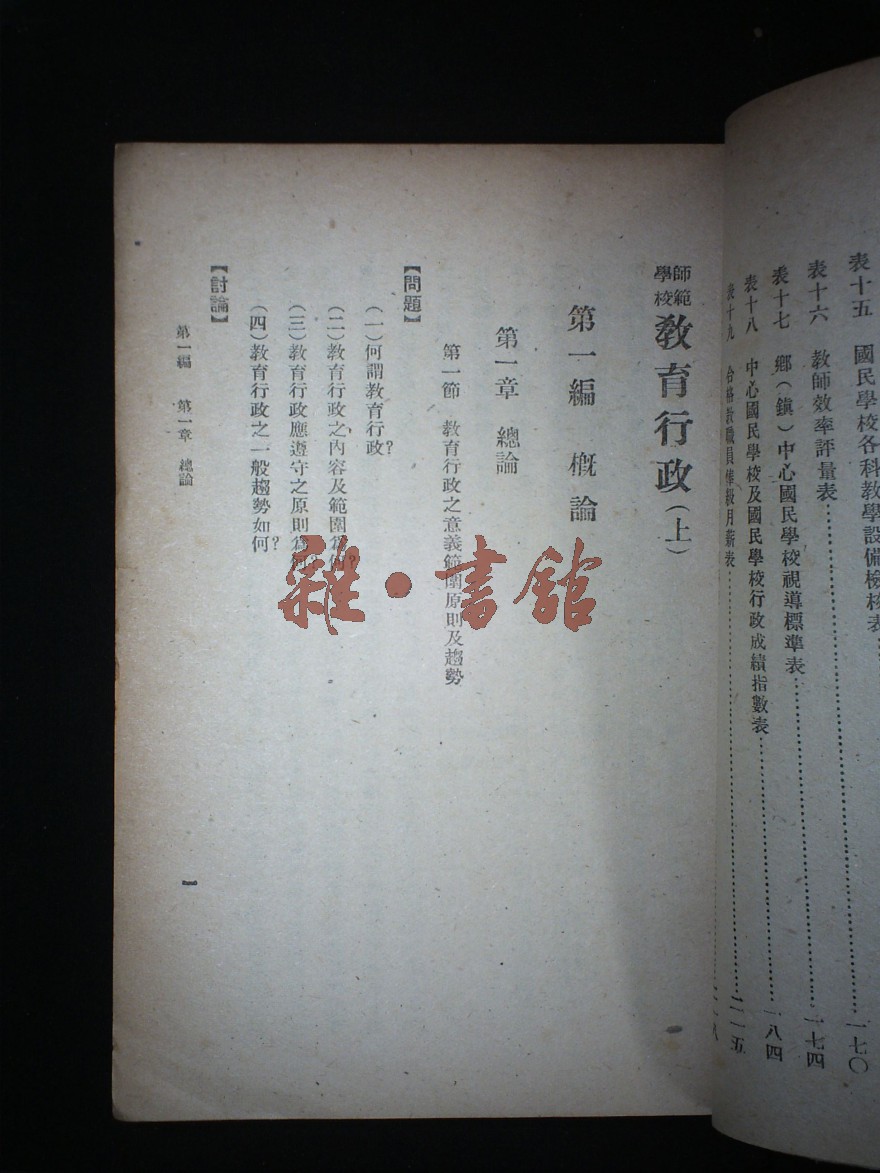 表十五　國民學校各科教學設備檢核表……一七〇
表十六　教師效率評量表……一七四
表十七　鄉（鎮）中心國民學校視導標準表……一八四
表十八　中心國民學校及國民學校行政成績指數表……二一五
表十九　合格教職員俸穀月薪表……
師範學校教育行政（上）
第一編　概論
第一章　總論
第一節　教育行政之意義範圍原則及趨勢
【問題】
（一）何謂教育行政？
（二）教育行政之內容及範圍爲何？
（三）教育行政應遵守之原則爲何？
（四）教育行政之一般趨勢如何？
【討論】
第一編　第一章　總論
一
雜・書館